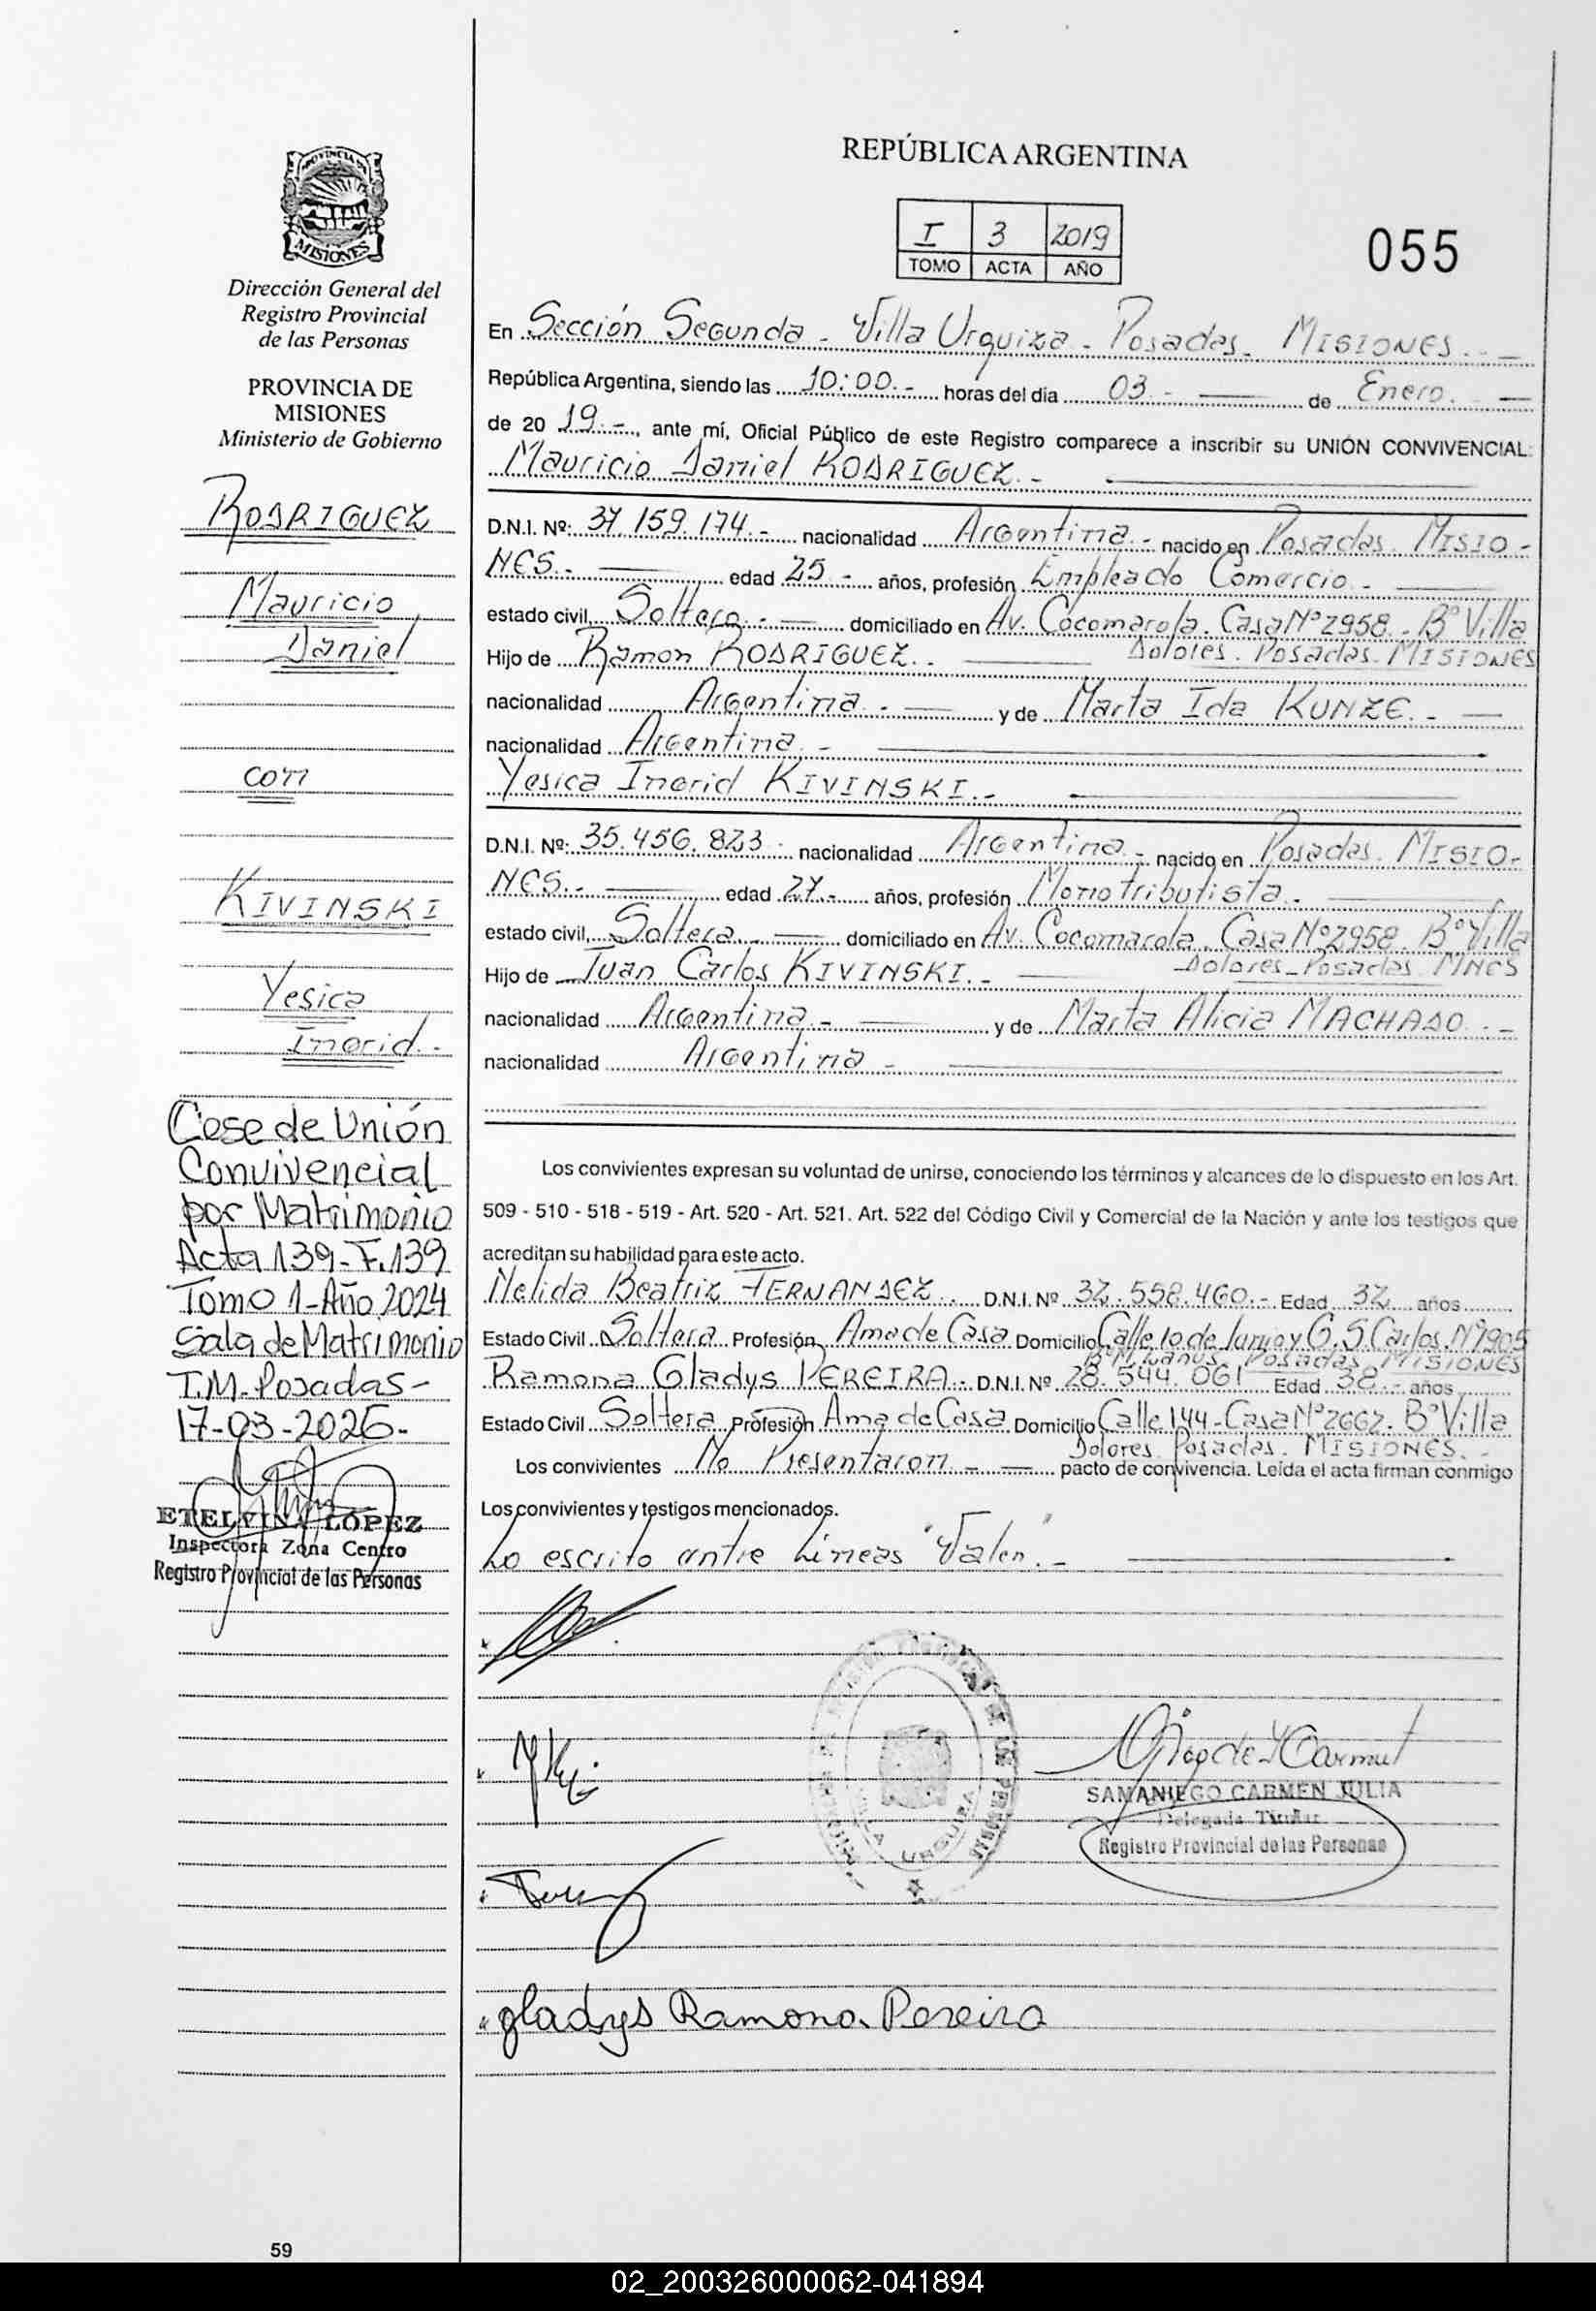 REPÚBLICA ARGENTINA
I 3 2019
TOMO ACTA AÑO
055
PROVINCIA DE
MISIONES
Dirección General del
Registro Provincial
de las Personas
PROVINCIA DE
MISIONES
Ministerio de Gobierno
RODRIGUEZ
Mauricio
Daniel
con
KIVINSKI
Yesica
Ingrid.-
Cese de Unión
Convivencial
por Matrimonio
Acta 139-F.139
Tomo 1-Año 2024
Sala de Matrimonio
T.M. Posadas-
17-03-2026-
ETELVINA LOPEZ
Inspectora Zona Centro
Registro Provincial de las Personas
En Sección Segunda - Villa Urquiza - Posadas - MISIONES.-
República Argentina, siendo las 10:00.- horas del día 03.- de Enero.-
de 20 19.-, ante mí, Oficial Público de este Registro comparece a inscribir su UNIÓN CONVIVENCIAL:
Mauricio Daniel RODRIGUEZ.-
D.N.I. Nº: 37.159.174.- nacionalidad Argentina.- nacido en Posadas. MISIO-
NES.- edad 25.- años, profesión Empleado Comercio.-
estado civil, Soltero.- domiciliado en Av. Cocomarola. Casa Nº 2958. Bº Villa
Dolores. Posadas. MISIONES
Hijo de Ramon RODRIGUEZ.-
nacionalidad Argentina.- y de Marta Ida KUNZE.-
nacionalidad Argentina.-
Yesica Ingrid KIVINSKI.-
D.N.I. Nº: 35.456.823.- nacionalidad Argentina.- nacido en Posadas. MISIO-
NES.- edad 27.- años, profesión Monotributista.-
estado civil, Soltera.- domiciliado en Av. Cocomarola. Casa Nº 2958. Bº Villa
Dolores - Posadas. MNES
Hijo de Juan Carlos KIVINSKI.-
nacionalidad Argentina.- y de Marta Alicia MACHADO.-
nacionalidad Argentina.-
Los convivientes expresan su voluntad de unirse, conociendo los términos y alcances de lo dispuesto en los Art.
509 - 510 - 518 - 519 - Art. 520 - Art. 521. Art. 522 del Código Civil y Comercial de la Nación y ante los testigos que
acreditan su habilidad para este acto.
Nelida Beatriz FERNANDEZ. D.N.I. Nº 32.558.460.- Edad 32 años
Estado Civil Soltera Profesión Ama de Casa Domicilio Calle 10 de Junio y G. S. Carlos. Nº 7905
Posadas MISIONES
Ramona Gladys PEREIRA.- D.N.I. Nº 28.544.061 Edad 38.- años
Estado Civil Soltera Profesión Ama de Casa Domicilio Calle 144 - Casa Nº 2662. Bº Villa
Dolores. Posadas. MISIONES.-
Los convivientes No Presentaron.- pacto de convivencia. Leída el acta firman conmigo
Los convivientes y testigos mencionados.
Lo escrito entre Líneas "Valen".-
VILLA URQUIZA
SAMANIEGO CARMEN JULIA
Delegada Titular
Registro Provincial de las Personas
Gladys Ramona Pereira
59
02_200326000062-041894